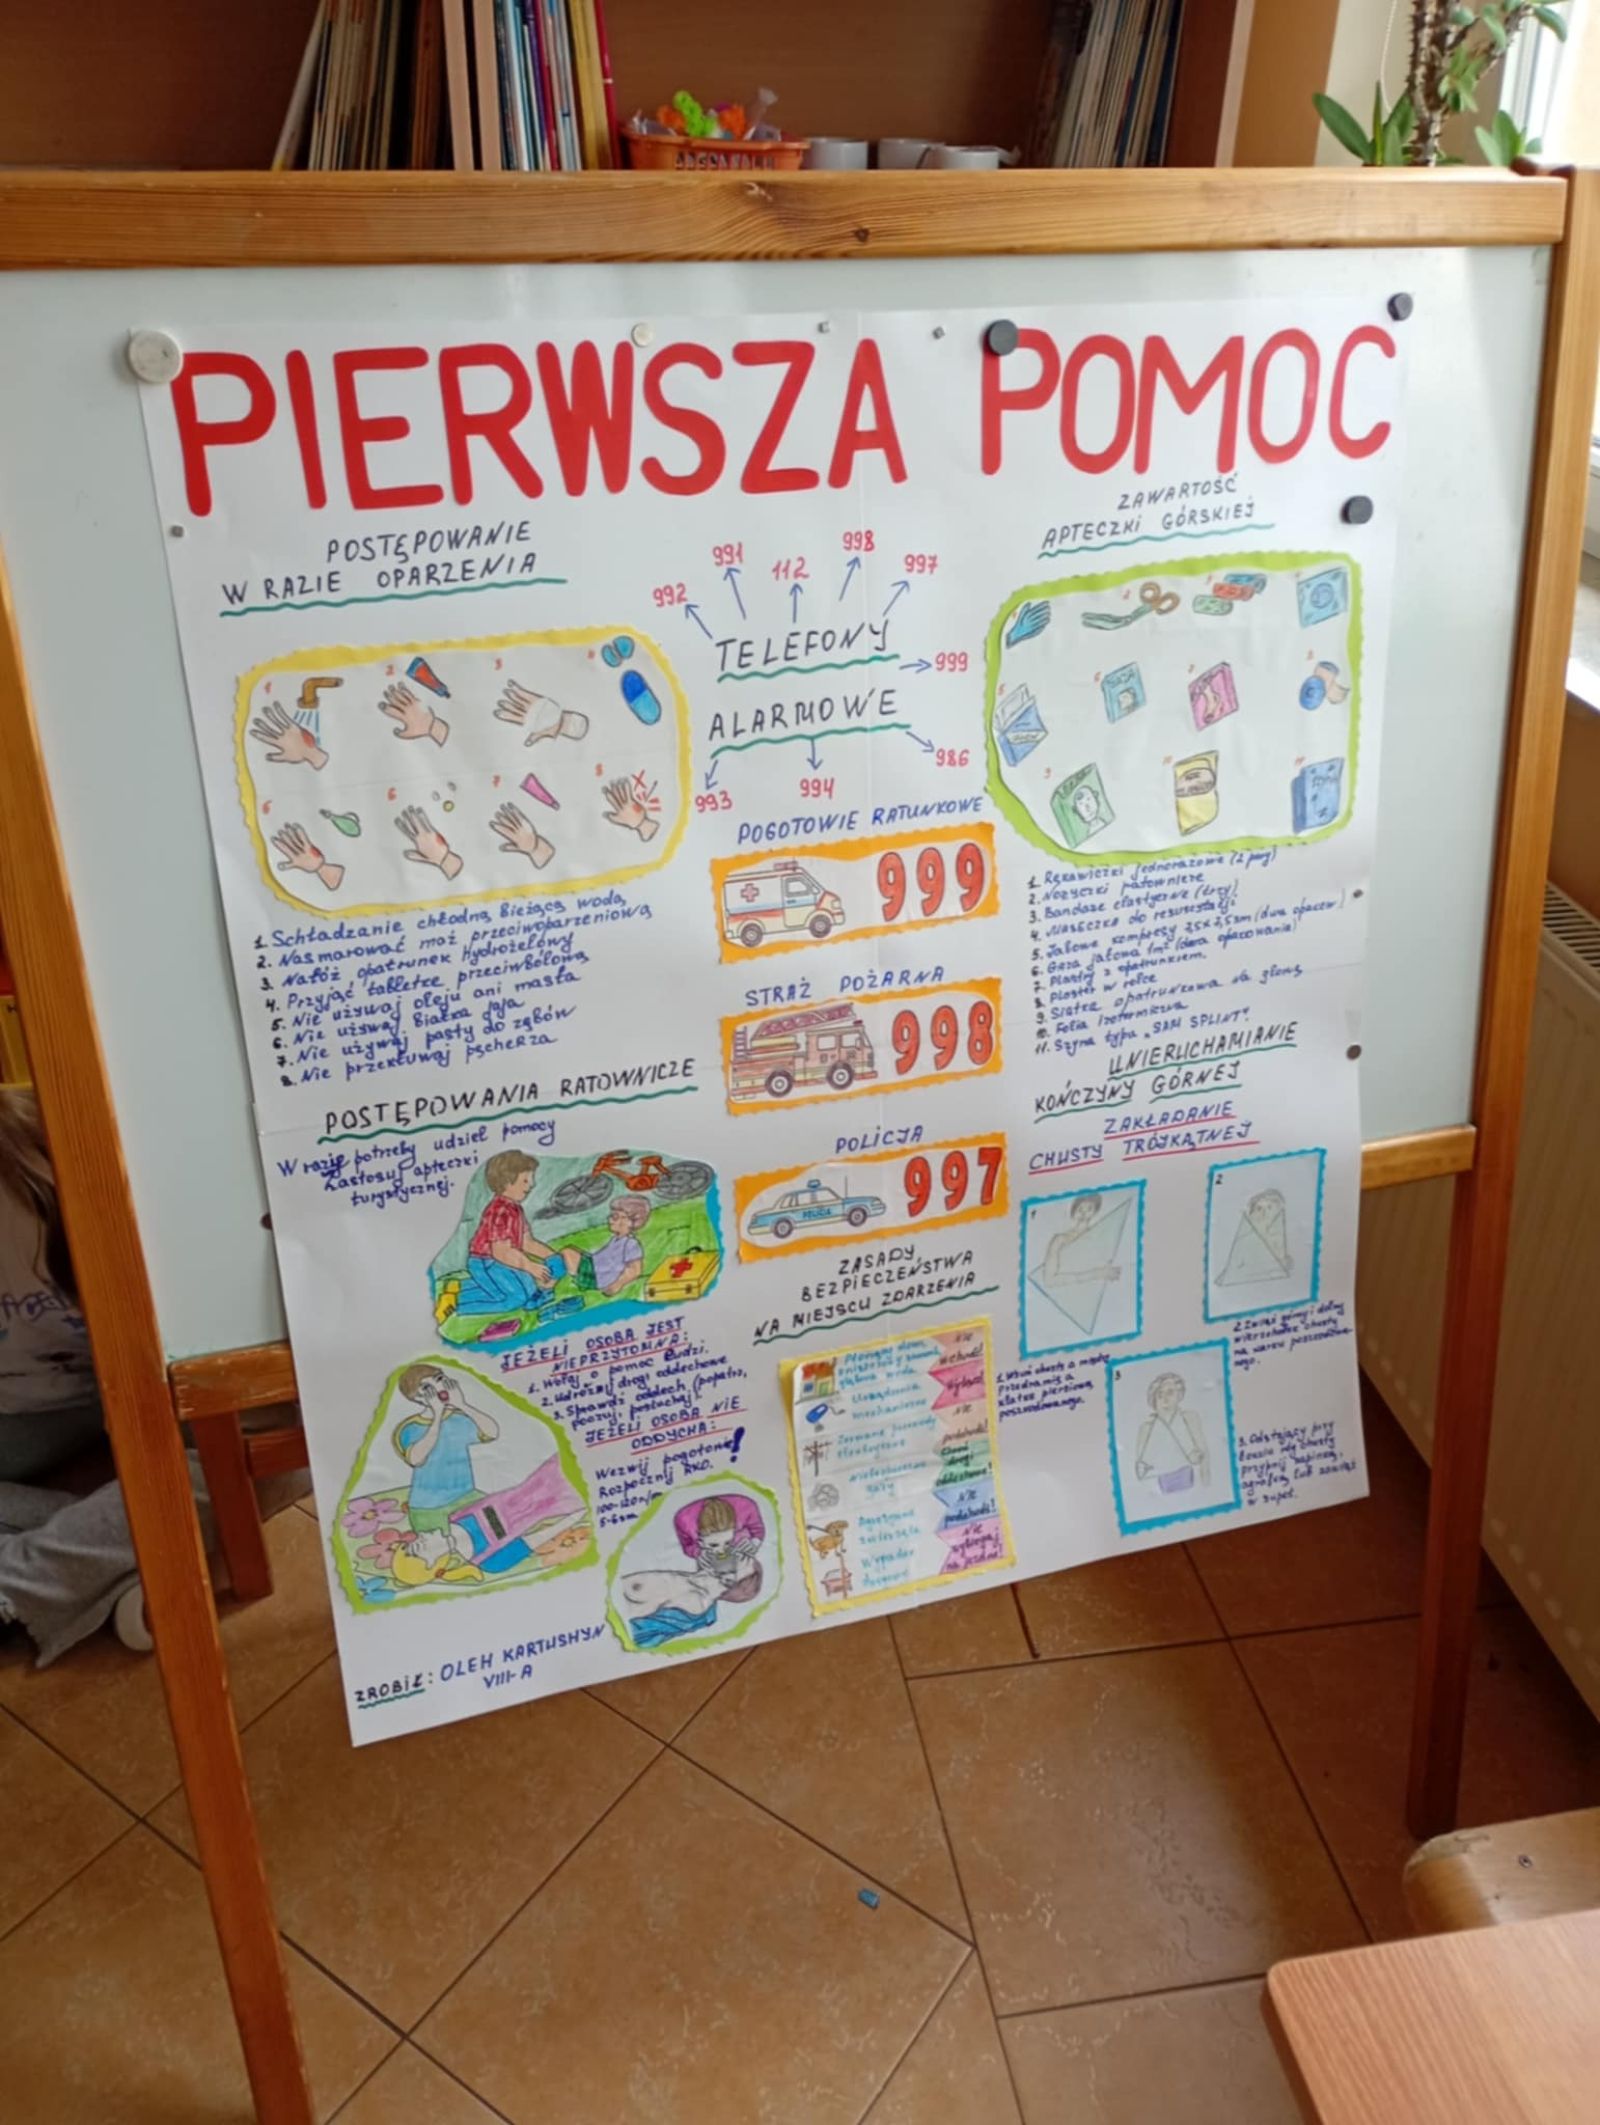 PIERWSZA POMOC
POSTĘPOWANIE
W RAZIE OPARZENIA
1 2 3 4
6 7 8
1. Schładzanie chłodną bieżącą wodą
2. Nasmarować maź przeciwoparzeniową
3. Nałóż opatrunek hydrożelowy
4. Przyjąć tabletkę przeciwbólową
5. Nie używaj oleju ani masła
6. Nie używaj białka jaja
7. Nie używaj pasty do zębów
8. Nie przekłuwaj pęcherza
POSTĘPOWANIA RATOWNICZE
W razie potrzeby udziel pomocy
Zastosuj apteczki
turystycznej.
JEŻELI OSOBA JEST
NIEPRZYTOMNA:
1. Wołaj o pomoc ludzi.
2. Udrożnij drogi oddechowe
3. Sprawdź oddech (popatrz,
poczuj, posłuchaj)
JEŻELI OSOBA NIE
ODDYCHA:
Wezwij pogotowie!
Rozpocznij RKO.
100-120n/m
5-6cm
ZROBIŁ: OLEH KARTUSHYN
VIII-A
992 991 112 998 997
TELEFONY
999
ALARMOWE
986
993 994
POGOTOWIE RATUNKOWE
999
STRAŻ POŻARNA
998
POLICJA
POLICJA 997
ZASADY
BEZPIECZEŃSTWA
NA MIEJSCU ZDARZENIA
Urządzenia
mechaniczne
Zerwane przewody
elektryczne
Niebezpieczne
gazy
Agresywne
zwierzęta
Wypadek
drogowy
Nie
wchodź!
Wyłącz!
Nie
podchodź!
Chroń
drogi
oddechowe!
Nie
podchodź!
Nie
wybiegaj
na jezdnię!
ZAWARTOŚĆ
APTECZKI GÓRSKIEJ
1. Rękawiczki jednorazowe (2 pary)
2. Nożyczki ratownicze
3. Bandaże elastyczne (trzy)
4. Maseczka do resuscytacji
5. Jałowe kompresy
6. Gaza jałowa 1m² (dwa opakowania)
7. Plastry z opatrunkiem.
8. Plaster w rolce
9. Siatka opatrunkowa na głowę
10. Folia izotermiczna
11. Szyna typu „SAM SPLINT".
UNIERUCHAMIANIE
KOŃCZYNY GÓRNEJ
ZAKŁADANIE
CHUSTY TRÓJKĄTNEJ
1
2
3
1. Wsuń chustę a między
przedramię a
klatkę piersiową
poszkodowanego.
2. Zwiąż górny i dolny
wierzchołek chusty
na karku poszkodowa-
nego.
3. Odstający przy
łokciu róg chusty
przypnij zapinką,
agrafką lub zawiąż
w supeł.